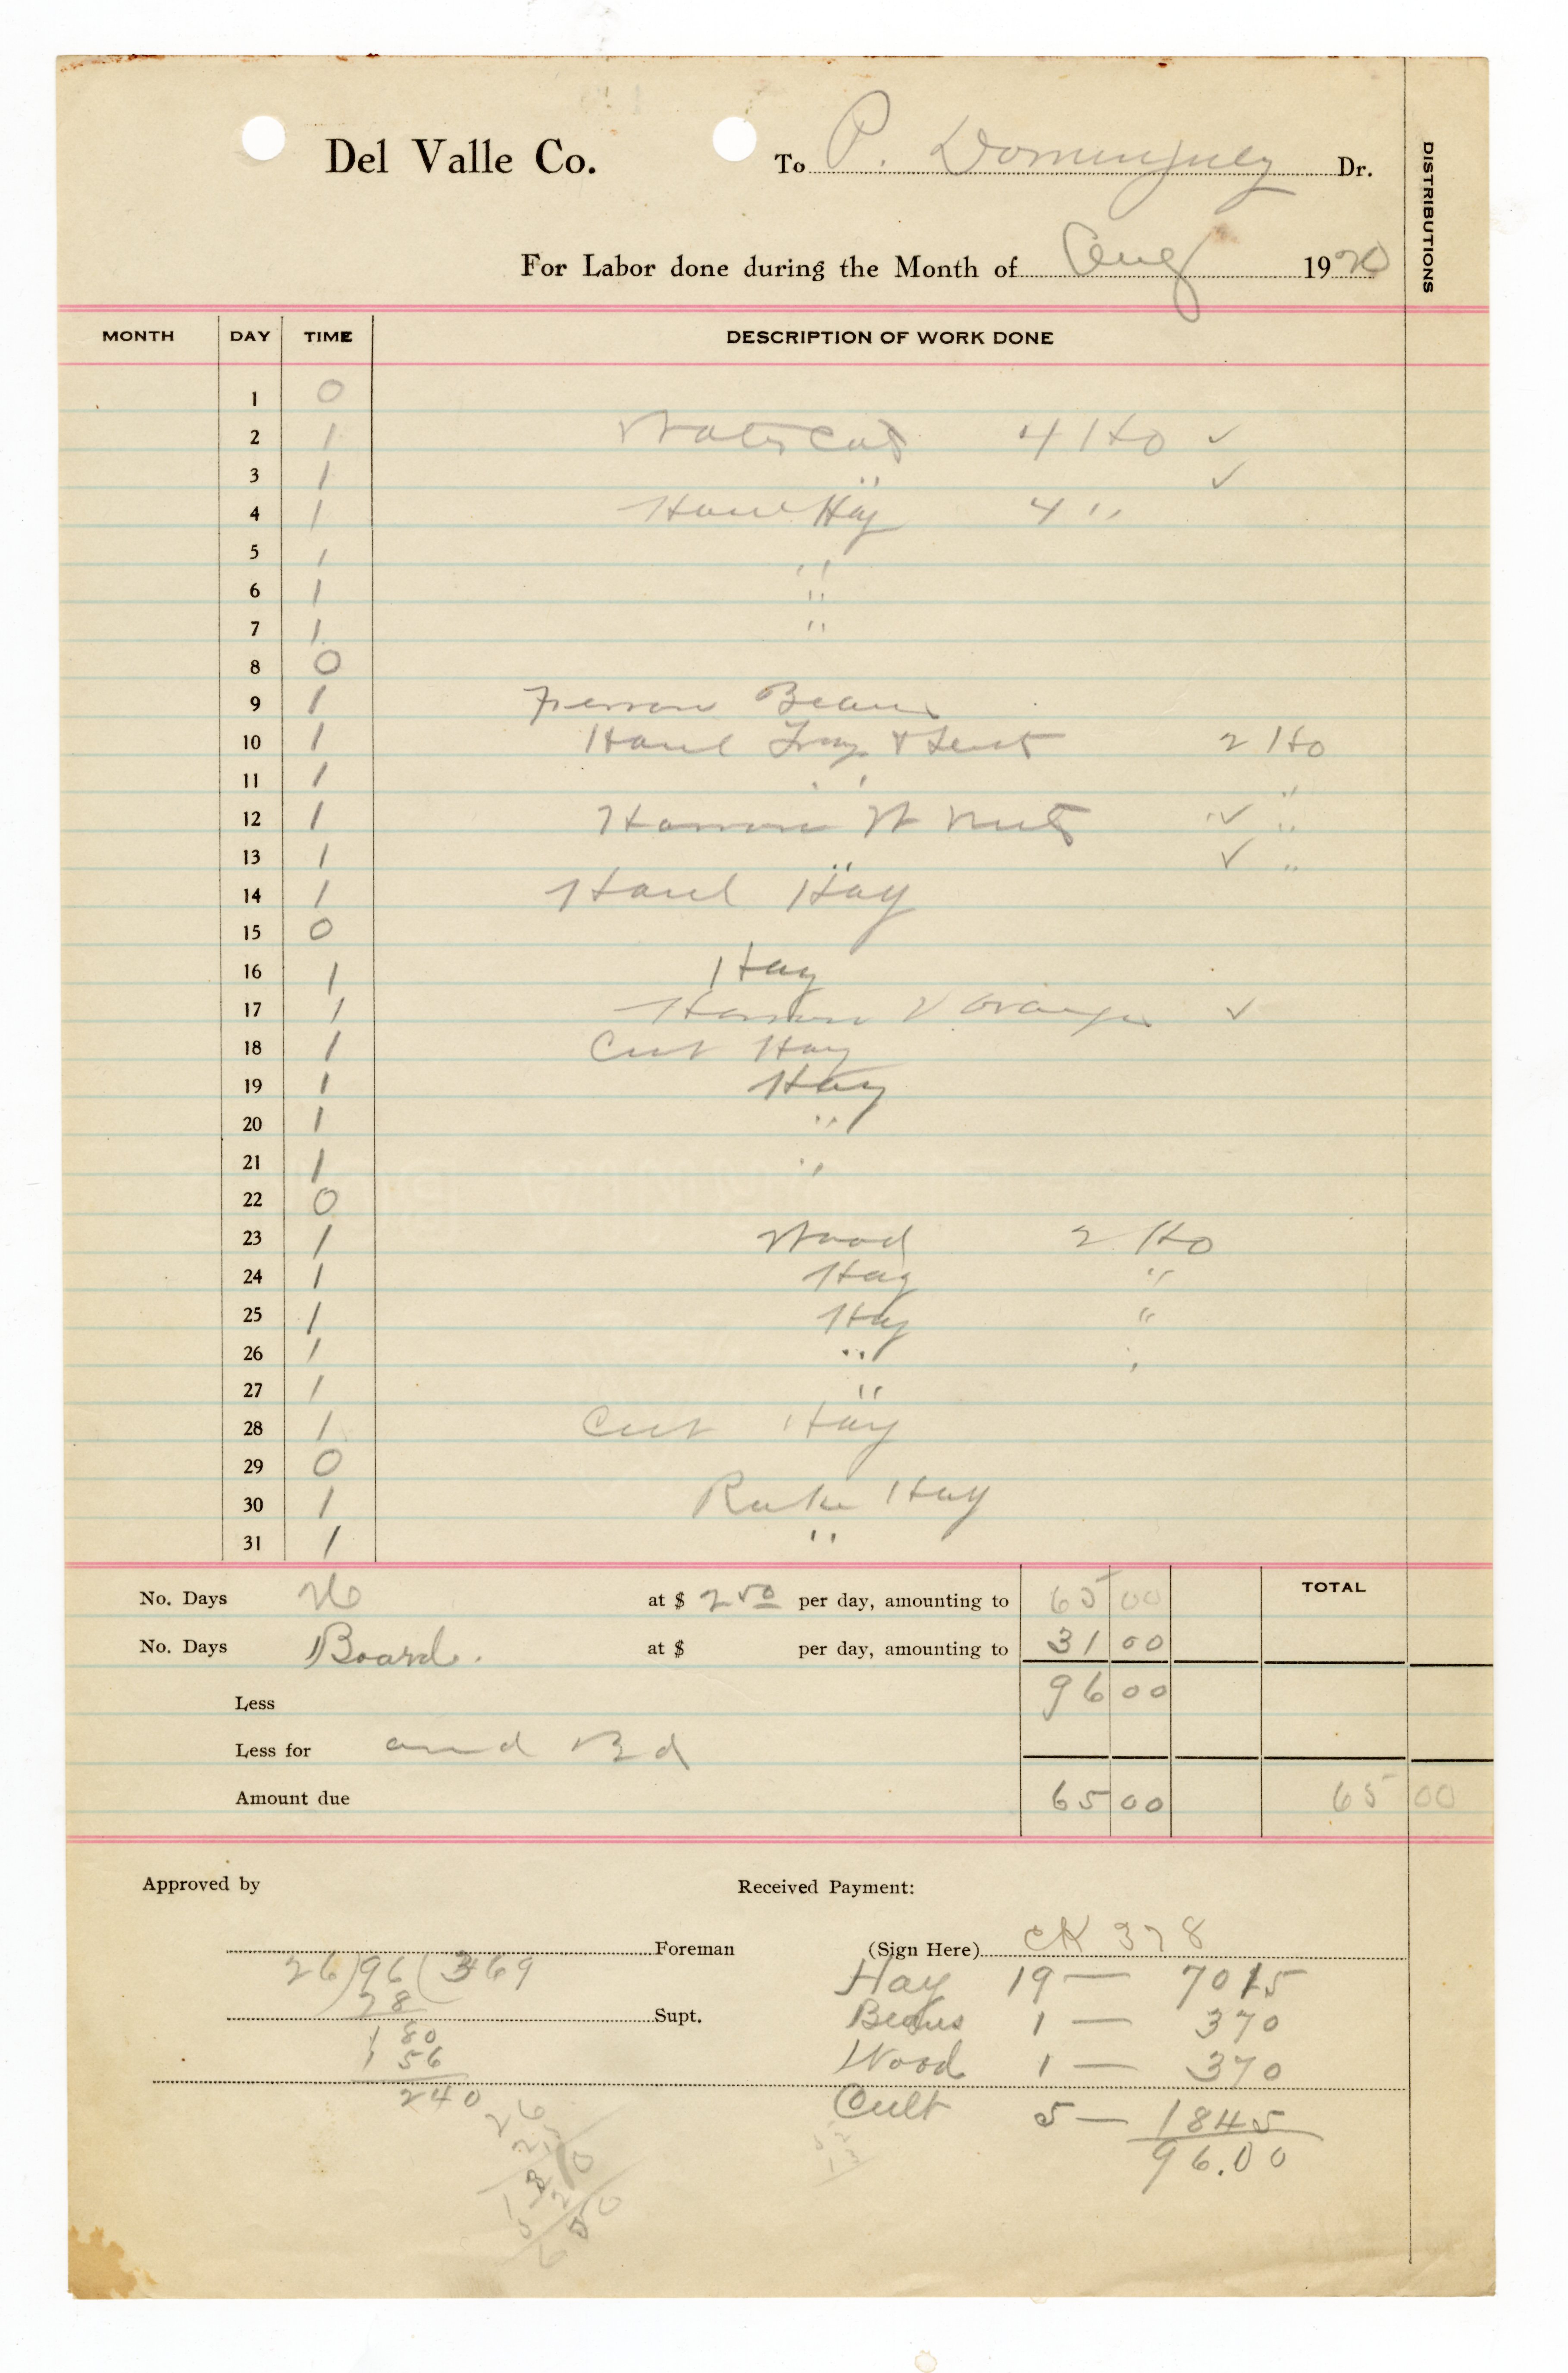 Del Valle Co. To P. Dominguez Dr.
For Labor done during the Month of Aug 1920
DISTRIBUTIONS
MONTH DAY TIME DESCRIPTION OF WORK DONE
1 0
2 1 4 Ho ✓
3 1 " ✓
4 1 Haul Hay 4 "
5 1 "
6 1 "
7 1 "
8 0
9 1 Beans
10 1 Haul & Tent 2 Ho
11 1 " "
12 1 W Nuts ✓ "
13 1 " ✓ "
14 1 Haul Hay
15 0
16 1 Hay
17 1 V Oranges ✓
18 1 Cut Hay
19 1 Hay
20 1 "
21 1 "
22 0
23 1 Wood 2 Ho
24 1 Hay "
25 1 Hay "
26 1 "
27 1 "
28 1 Cut Hay
29 0
30 1 Rake Hay
31 1 "
No. Days 26 at $ 2 50 per day, amounting to 65 00 TOTAL
No. Days Board. at $ per day, amounting to 31 00
Less 96 00
Less for and Bd
Amount due 65 00 65 00
Approved by Received Payment:
Foreman (Sign Here) CK 378
26)96(369 Hay 19 — 7015
78 Supt. Beans 1 — 370
180
156 Wood 1 — 370
240 Cult 5 — 1845
96.00